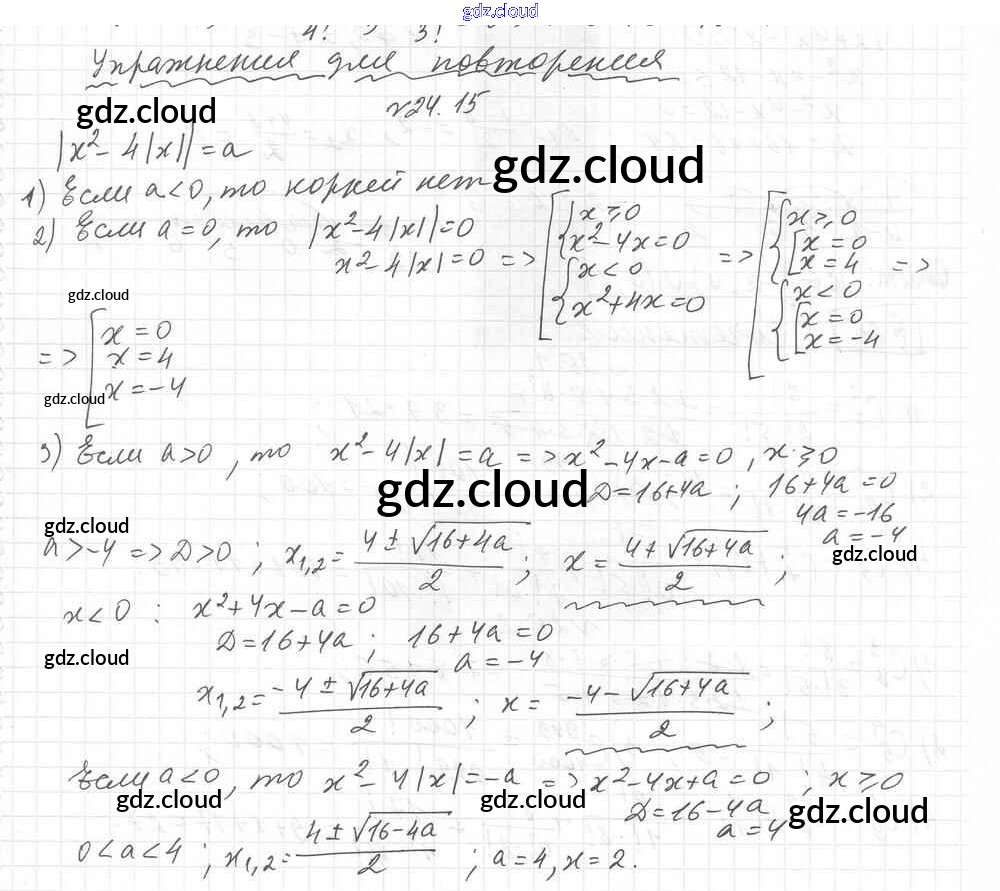 gdz.cloud
4! 3!
Упражнения для повторения
№24.15
gdz.cloud
|x²-4|x|| = a
gdz.cloud
1) Если a<0, то корней нет
2) Если a=0, то |x²-4|x||=0
x²-4|x|=0 => [ { x≥0
x²-4x=0
{ x<0
x²+4x=0
=> [ { x≥0
[ x=0
x=4
{ x<0
[ x=0
x=-4
=>
gdz.cloud
=> [ x=0
x=4
x=-4
gdz.cloud
3) Если a>0, то x²-4|x|=a => x²-4x-a=0, x≥0
gdz.cloud
D=16+4a ; 16+4a=0
4a=-16
a=-4
gdz.cloud
gdz.cloud
a>-4 => D>0 ; x₁,₂ = (4±√16+4a)/2 ; x = (4+√16+4a)/2 ;
x<0 : x²+4x-a=0
D=16+4a ; 16+4a=0
a=-4
gdz.cloud
x₁,₂ = (-4±√16+4a)/2 ; x = (-4-√16+4a)/2 ;
Если a<0, то x²-4|x|=-a => x²-4x+a=0 ; x≥0
gdz.cloud gdz.cloud gdz.cloud
D=16-4a
a=4
0<a<4 ; x₁,₂ = (4±√16-4a)/2 ; a=4, x=2.